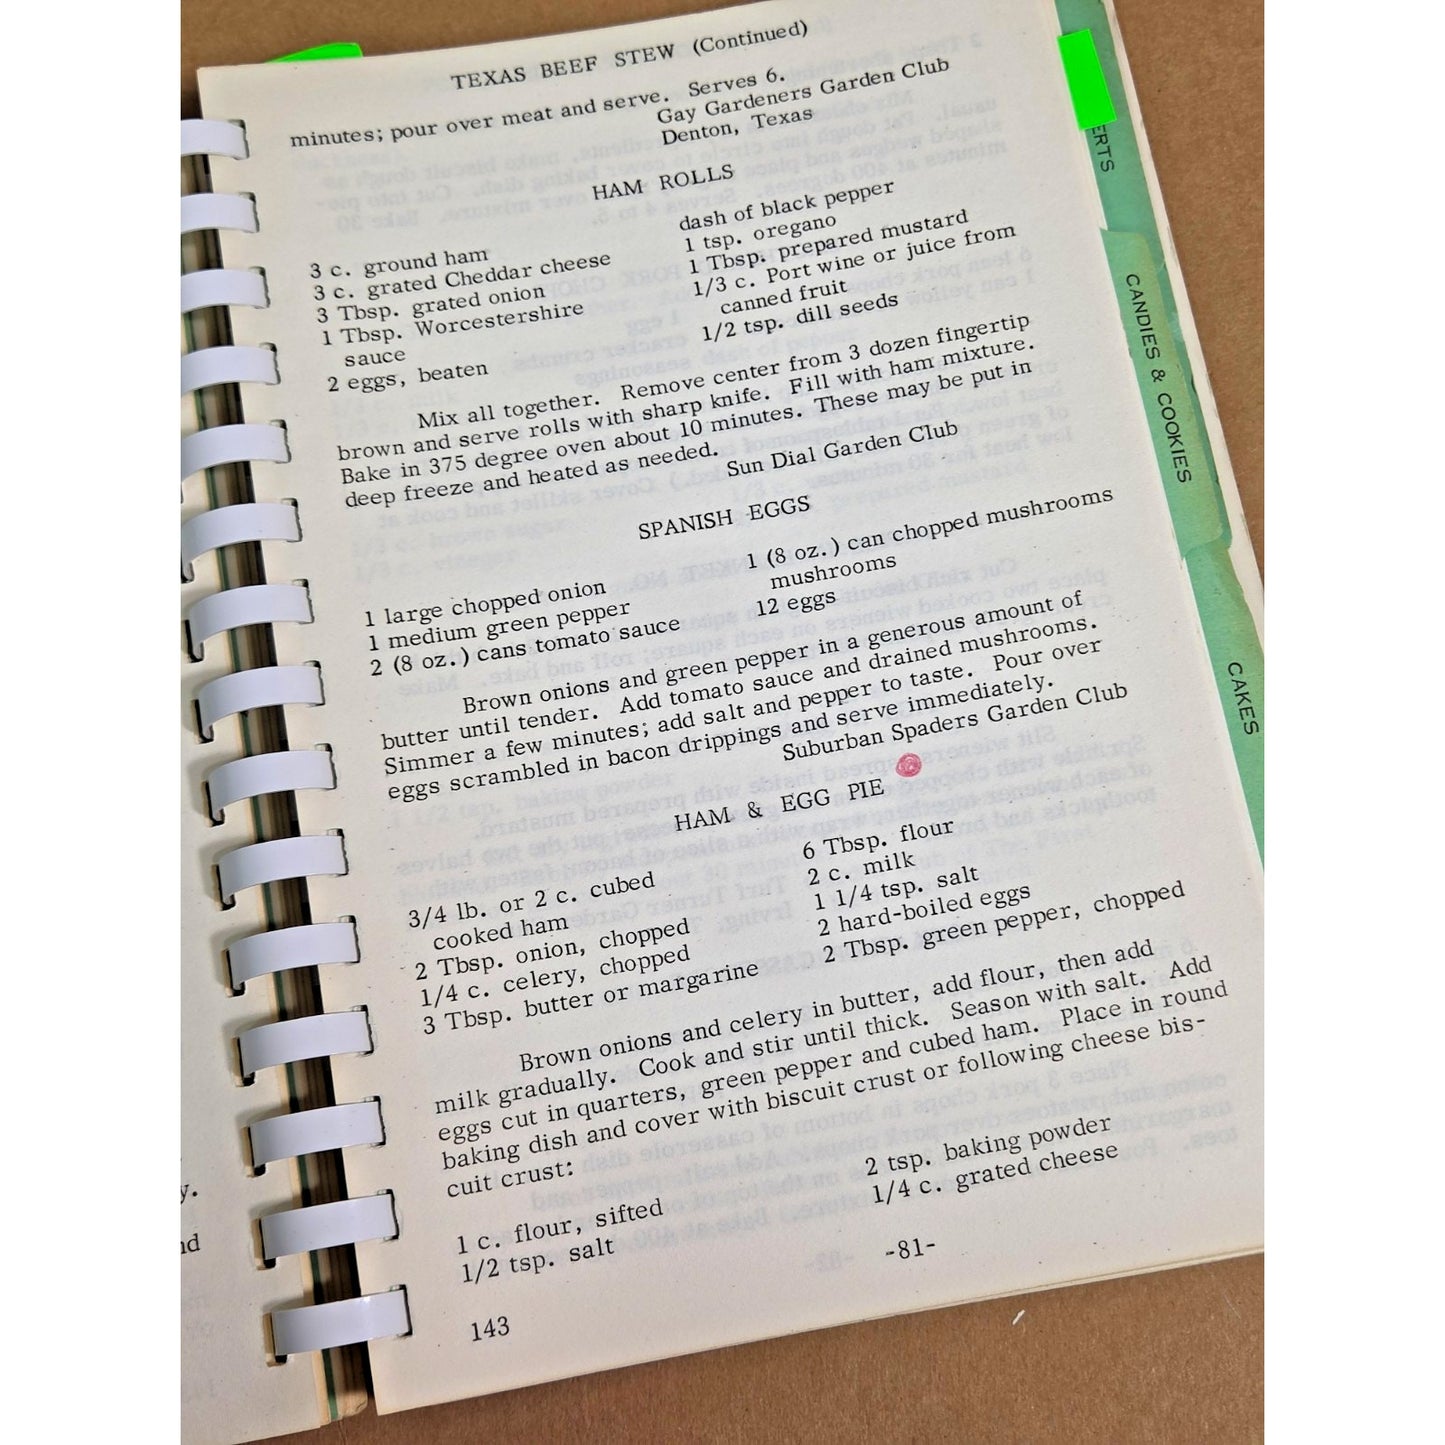 TEXAS BEEF STEW (Continued)
minutes; pour over meat and serve. Serves 6.
Gay Gardeners Garden Club
Denton, Texas
HAM ROLLS
3 c. ground ham
3 c. grated Cheddar cheese
3 Tbsp. grated onion
1 Tbsp. Worcestershire
sauce
2 eggs, beaten
dash of black pepper
1 tsp. oregano
1 Tbsp. prepared mustard
1/3 c. Port wine or juice from
canned fruit
1/2 tsp. dill seeds
Mix all together. Remove center from 3 dozen fingertip
brown and serve rolls with sharp knife. Fill with ham mixture.
Bake in 375 degree oven about 10 minutes. These may be put in
deep freeze and heated as needed.
Sun Dial Garden Club
SPANISH EGGS
1 large chopped onion
1 medium green pepper
2 (8 oz.) cans tomato sauce
1 (8 oz.) can chopped mushrooms
mushrooms
12 eggs
Brown onions and green pepper in a generous amount of
butter until tender. Add tomato sauce and drained mushrooms.
Simmer a few minutes; add salt and pepper to taste. Pour over
eggs scrambled in bacon drippings and serve immediately.
Suburban Spaders Garden Club
HAM & EGG PIE
3/4 lb. or 2 c. cubed
cooked ham
2 Tbsp. onion, chopped
1/4 c. celery, chopped
3 Tbsp. butter or margarine
6 Tbsp. flour
2 c. milk
1 1/4 tsp. salt
2 hard-boiled eggs
2 Tbsp. green pepper, chopped
Brown onions and celery in butter, add flour, then add
milk gradually. Cook and stir until thick. Season with salt. Add
eggs cut in quarters, green pepper and cubed ham. Place in round
baking dish and cover with biscuit crust or following cheese bis-
cuit crust:
1 c. flour, sifted
1/2 tsp. salt
2 tsp. baking powder
1/4 c. grated cheese
-81-
143
ERTS
CANDIES & COOKIES
CAKES